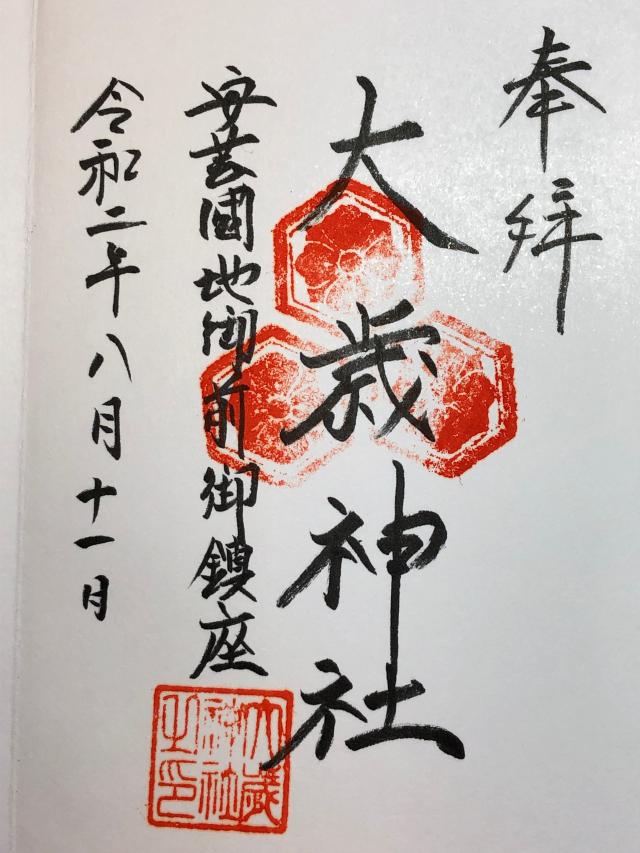 奉拜
大歳神社
安芸國地御前御鎮座
令和二年八月十一日
大歳神社之印